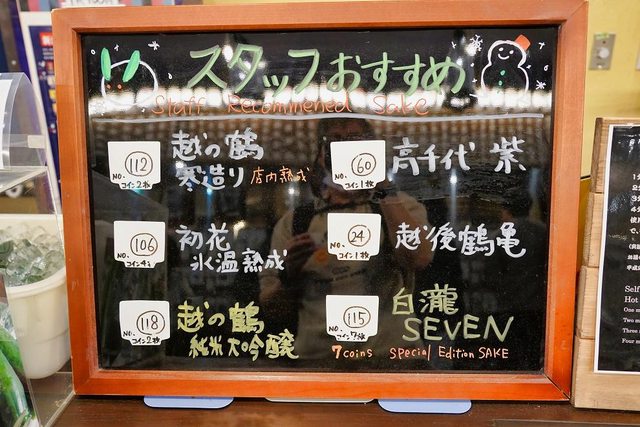 スタッフおすすめ
Staff Recommened Sake
NO. 112
コイン2枚
越の鶴
寒造り 店内熟成
NO. 60
コイン1枚
高千代 紫
NO. 106
コイン4枚
初花
氷温熟成
NO. 24
コイン1枚
越後鶴亀
NO. 118
コイン2枚
越の鶴
純米大吟醸
NO. 115
コイン7枚
白瀧
SEVEN
7coins Special Edition SAKE
Self
Hot
One m
Two m
Three
Four m